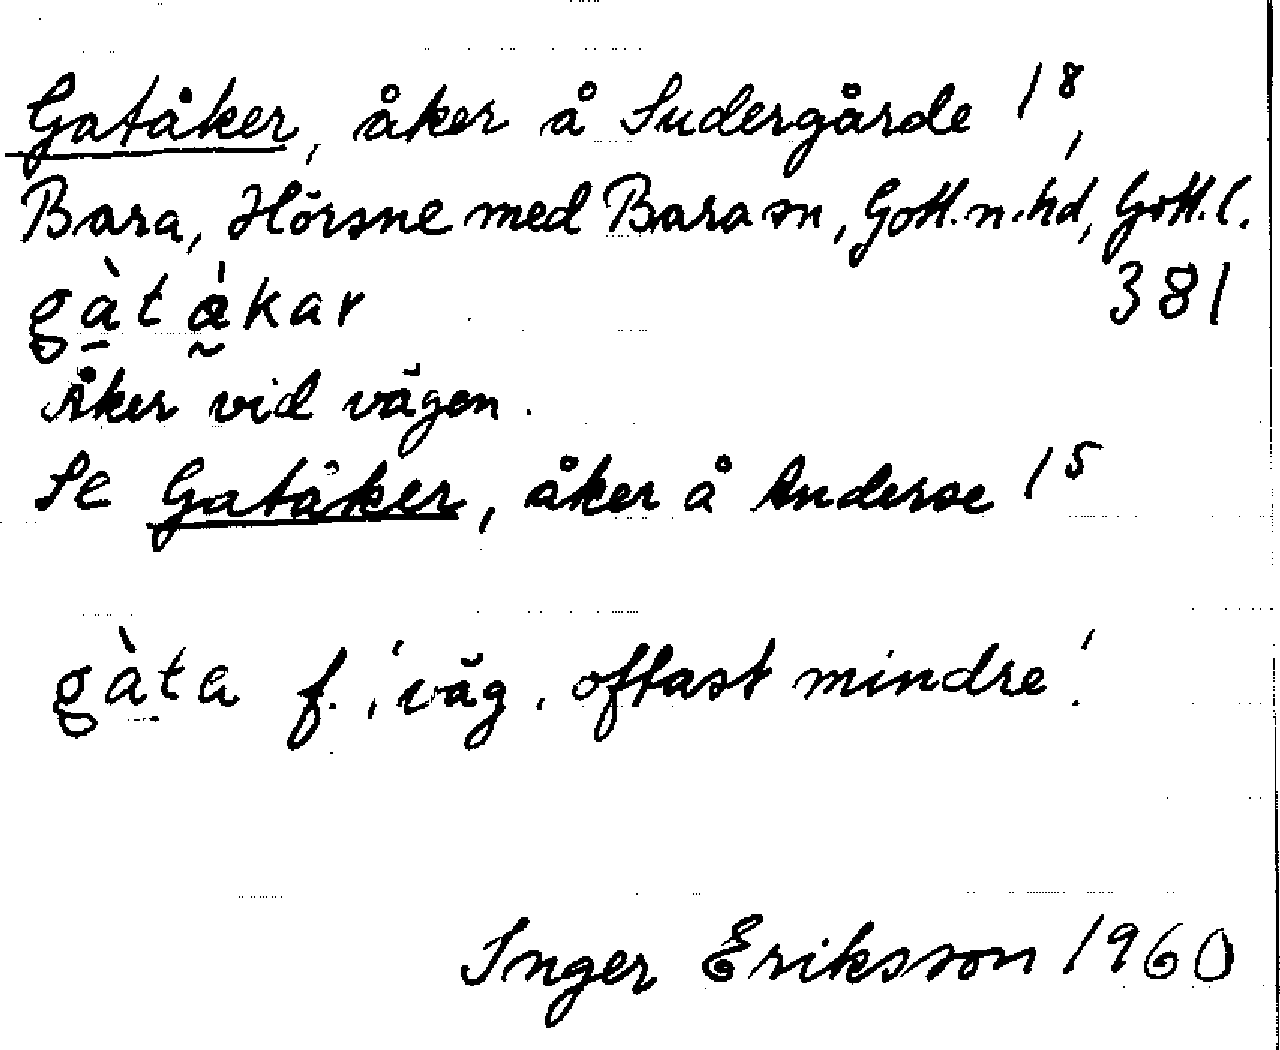 Gatåker, åker å Sudergårde 1⁸,
Bara, Hörsne med Bara sn, Gotl. n. hd, Gotl. l.
gàtåkar 381
Åker vid vägen.
Se Gatåker, åker å Anderse 1⁵
gàta f., 'väg, oftast mindre'.
Inger Eriksson 1960